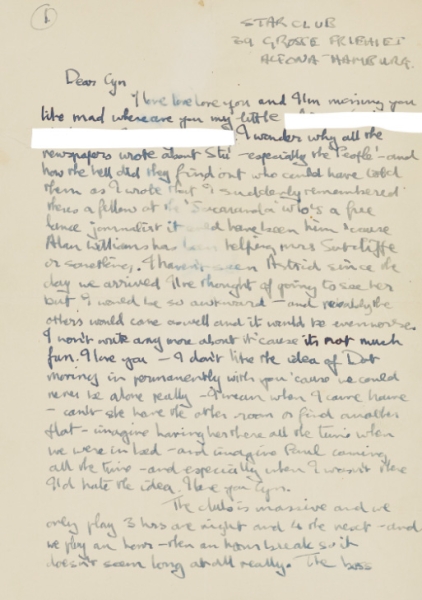 ①
STAR CLUB
39 GROSSE FREIHEIT
ALTONA HAMBURG.
Dear Cyn
I love love love you and I'm missing you
like mad where are you my little
I wonder why all the
newspapers wrote about Stu - especially the People - and
how the hell did they find out who could have told
them as I wrote that I suddenly remembered
theres a fellow at the 'Jacaranda' who's a free
lance journalist it could have been him 'cause
Alan Williams has been helping mrs Sutcliffe
or something. I haven't seen Astrid since the
day we arrived I've thought of going to see her
but I would be so awkward - and probably the
others would come as well and it would be even worse.
I won't write any more about it 'cause its not much
fun. I love you - I don't like the idea of Dot
moving in permanently with you 'cause we could
never be alone really - I mean when I come home
- can't she have the other room or find another
flat - imagine having her there all the time when
we were in bed - and imagine Paul coming
all the time - and especially when I wasn't there
I'd hate the idea. I love you Cyn.
The club is massive and we
only play 3 hrs one night and 4 the next - and
we play an hour - then an hours break so it
doesn't seem long at all really. The boss